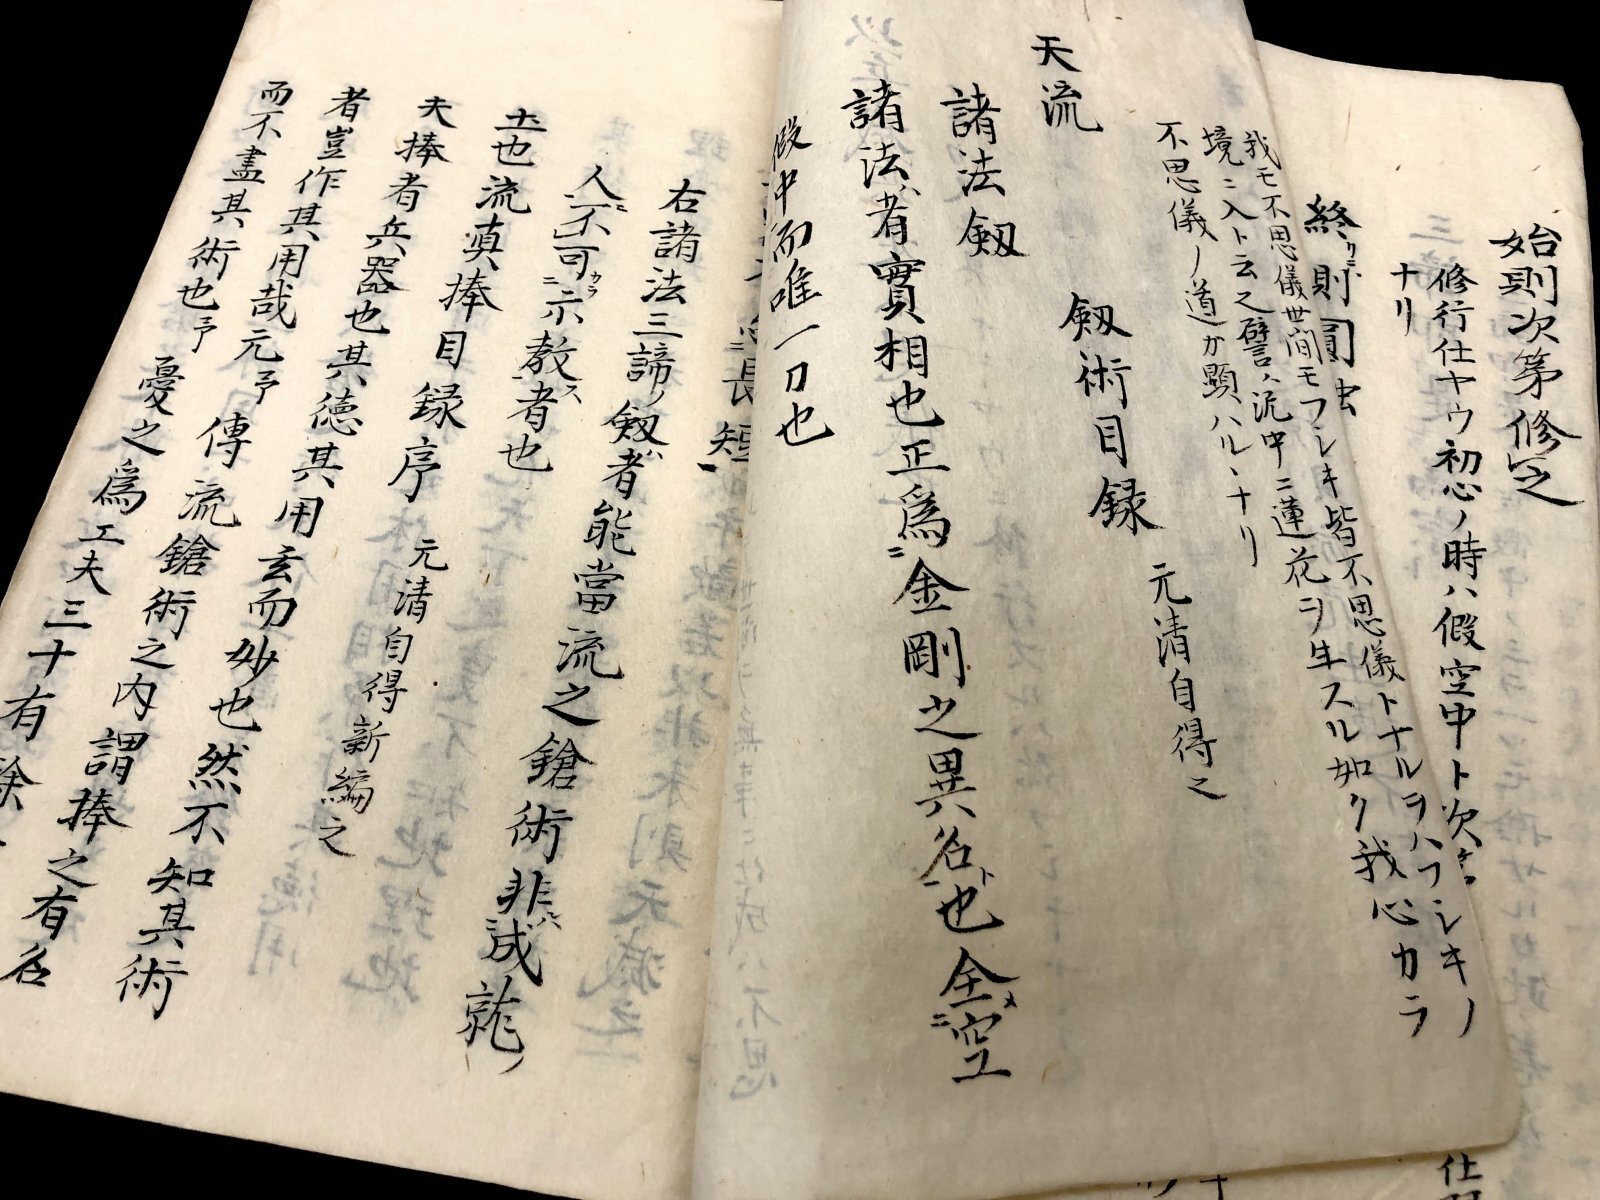 始則次第修之
修行仕ヤウ初心ノ時ハ假空中ト次
ナリ
終則圓
我モ不思儀世間モフシキ皆不思儀トナルヲハフシキノ
境ニ入ト云之譬ハ泥中ニ蓮花ヲ生スル如ク我心カラ
不思儀ノ道カ顕ハルヽナリ
天流 劔術目録 元清自得之
諸法劔
諸法者實相也正爲金剛之異名也全空
假中而唯一刀也
長短
右諸法三諦ノ劔者能當流之鎗術非成就ノ
人不可示教者也
圡也流真捧目録序 元清自得新編之
夫捧者兵器也其徳其用玄而妙也然不知其術
者豈作其用哉元予傳流鎗術之内謂捧之有名
而不盡其術也予憂之爲工夫三十有餘